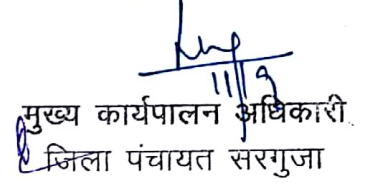 11/9
मुख्य कार्यपालन अधिकारी
जिला पंचायत सरगुजा